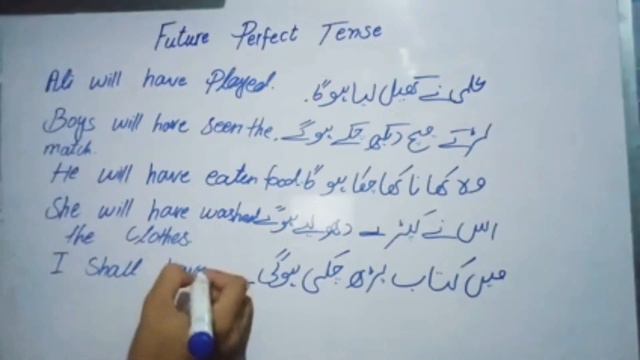 Future Perfect Tense
Ali will have Played. علی نے کھیل لیا ہو گا.
Boys will have seen the لڑکے میچ دیکھ چکے ہو گے.
match.
He will have eaten food. وہ کھانا کھا چکا ہو گا
She will have washed اس نے کپڑے دھو لیے ہو گے
the Clothes
I Shall میں کتاب پڑھ چکی ہو گی